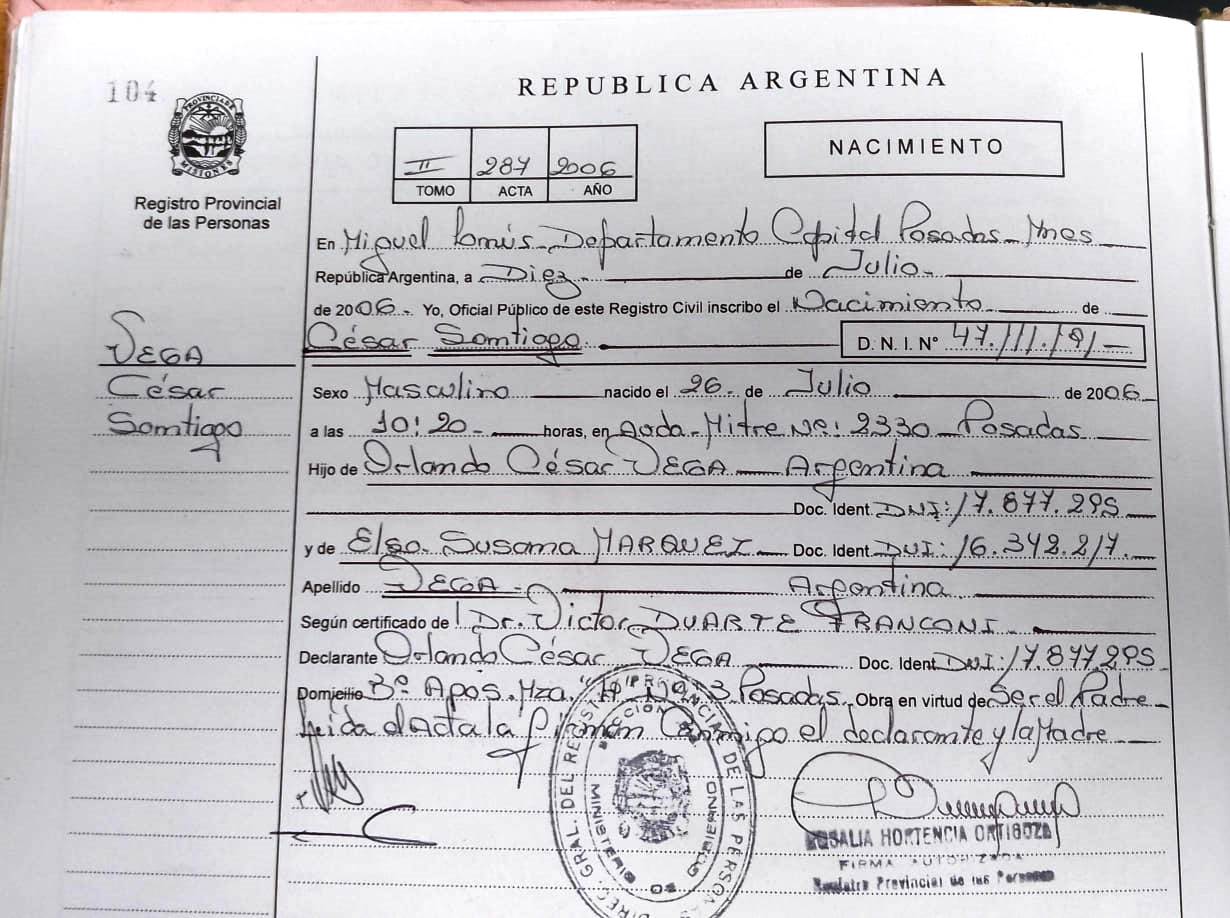 104
REPUBLICA ARGENTINA
PROVINCIA DE MISIONES
Registro Provincial
de las Personas
II 287 2006
TOMO ACTA AÑO
NACIMIENTO
En Miguel Lanús - Departamento Capital Posadas - Mnes
República Argentina, a Diez de Julio
de 2006. Yo, Oficial Público de este Registro Civil inscribo el Nacimiento de
César Santiago D. N. I. N° 47.111.191
VEGA
César
Santiago
Sexo Masculino nacido el 26 de Julio de 2006
a las 10:20 horas, en Avda. Mitre Nº: 2330 - Posadas
Hijo de Orlando César VEGA Argentina
Doc. Ident. DNI: 17.877.295
y de Elsa Susana MARQUEZ Doc. Ident. DNI: 16.342.217.
Apellido VEGA Argentina
Según certificado de Dr. Victor DUARTE FRANCONI
Declarante Orlando César VEGA Doc. Ident. DNI: 17.877.295
Domicilio 3º Apos. Mza. 3 Posadas. Obra en virtud de Ser el Padre
Leida el Acta la firman Conmigo el declarante y la Madre
DIREC. GRAL. DEL REGISTRO PROVINCIAL DE LAS PERSONAS
MINISTERIO DE GOBIERNO
ROSALIA HORTENCIA ORTIGOZA
FIRMA AUTORIZADA
Registro Provincial de las Personas